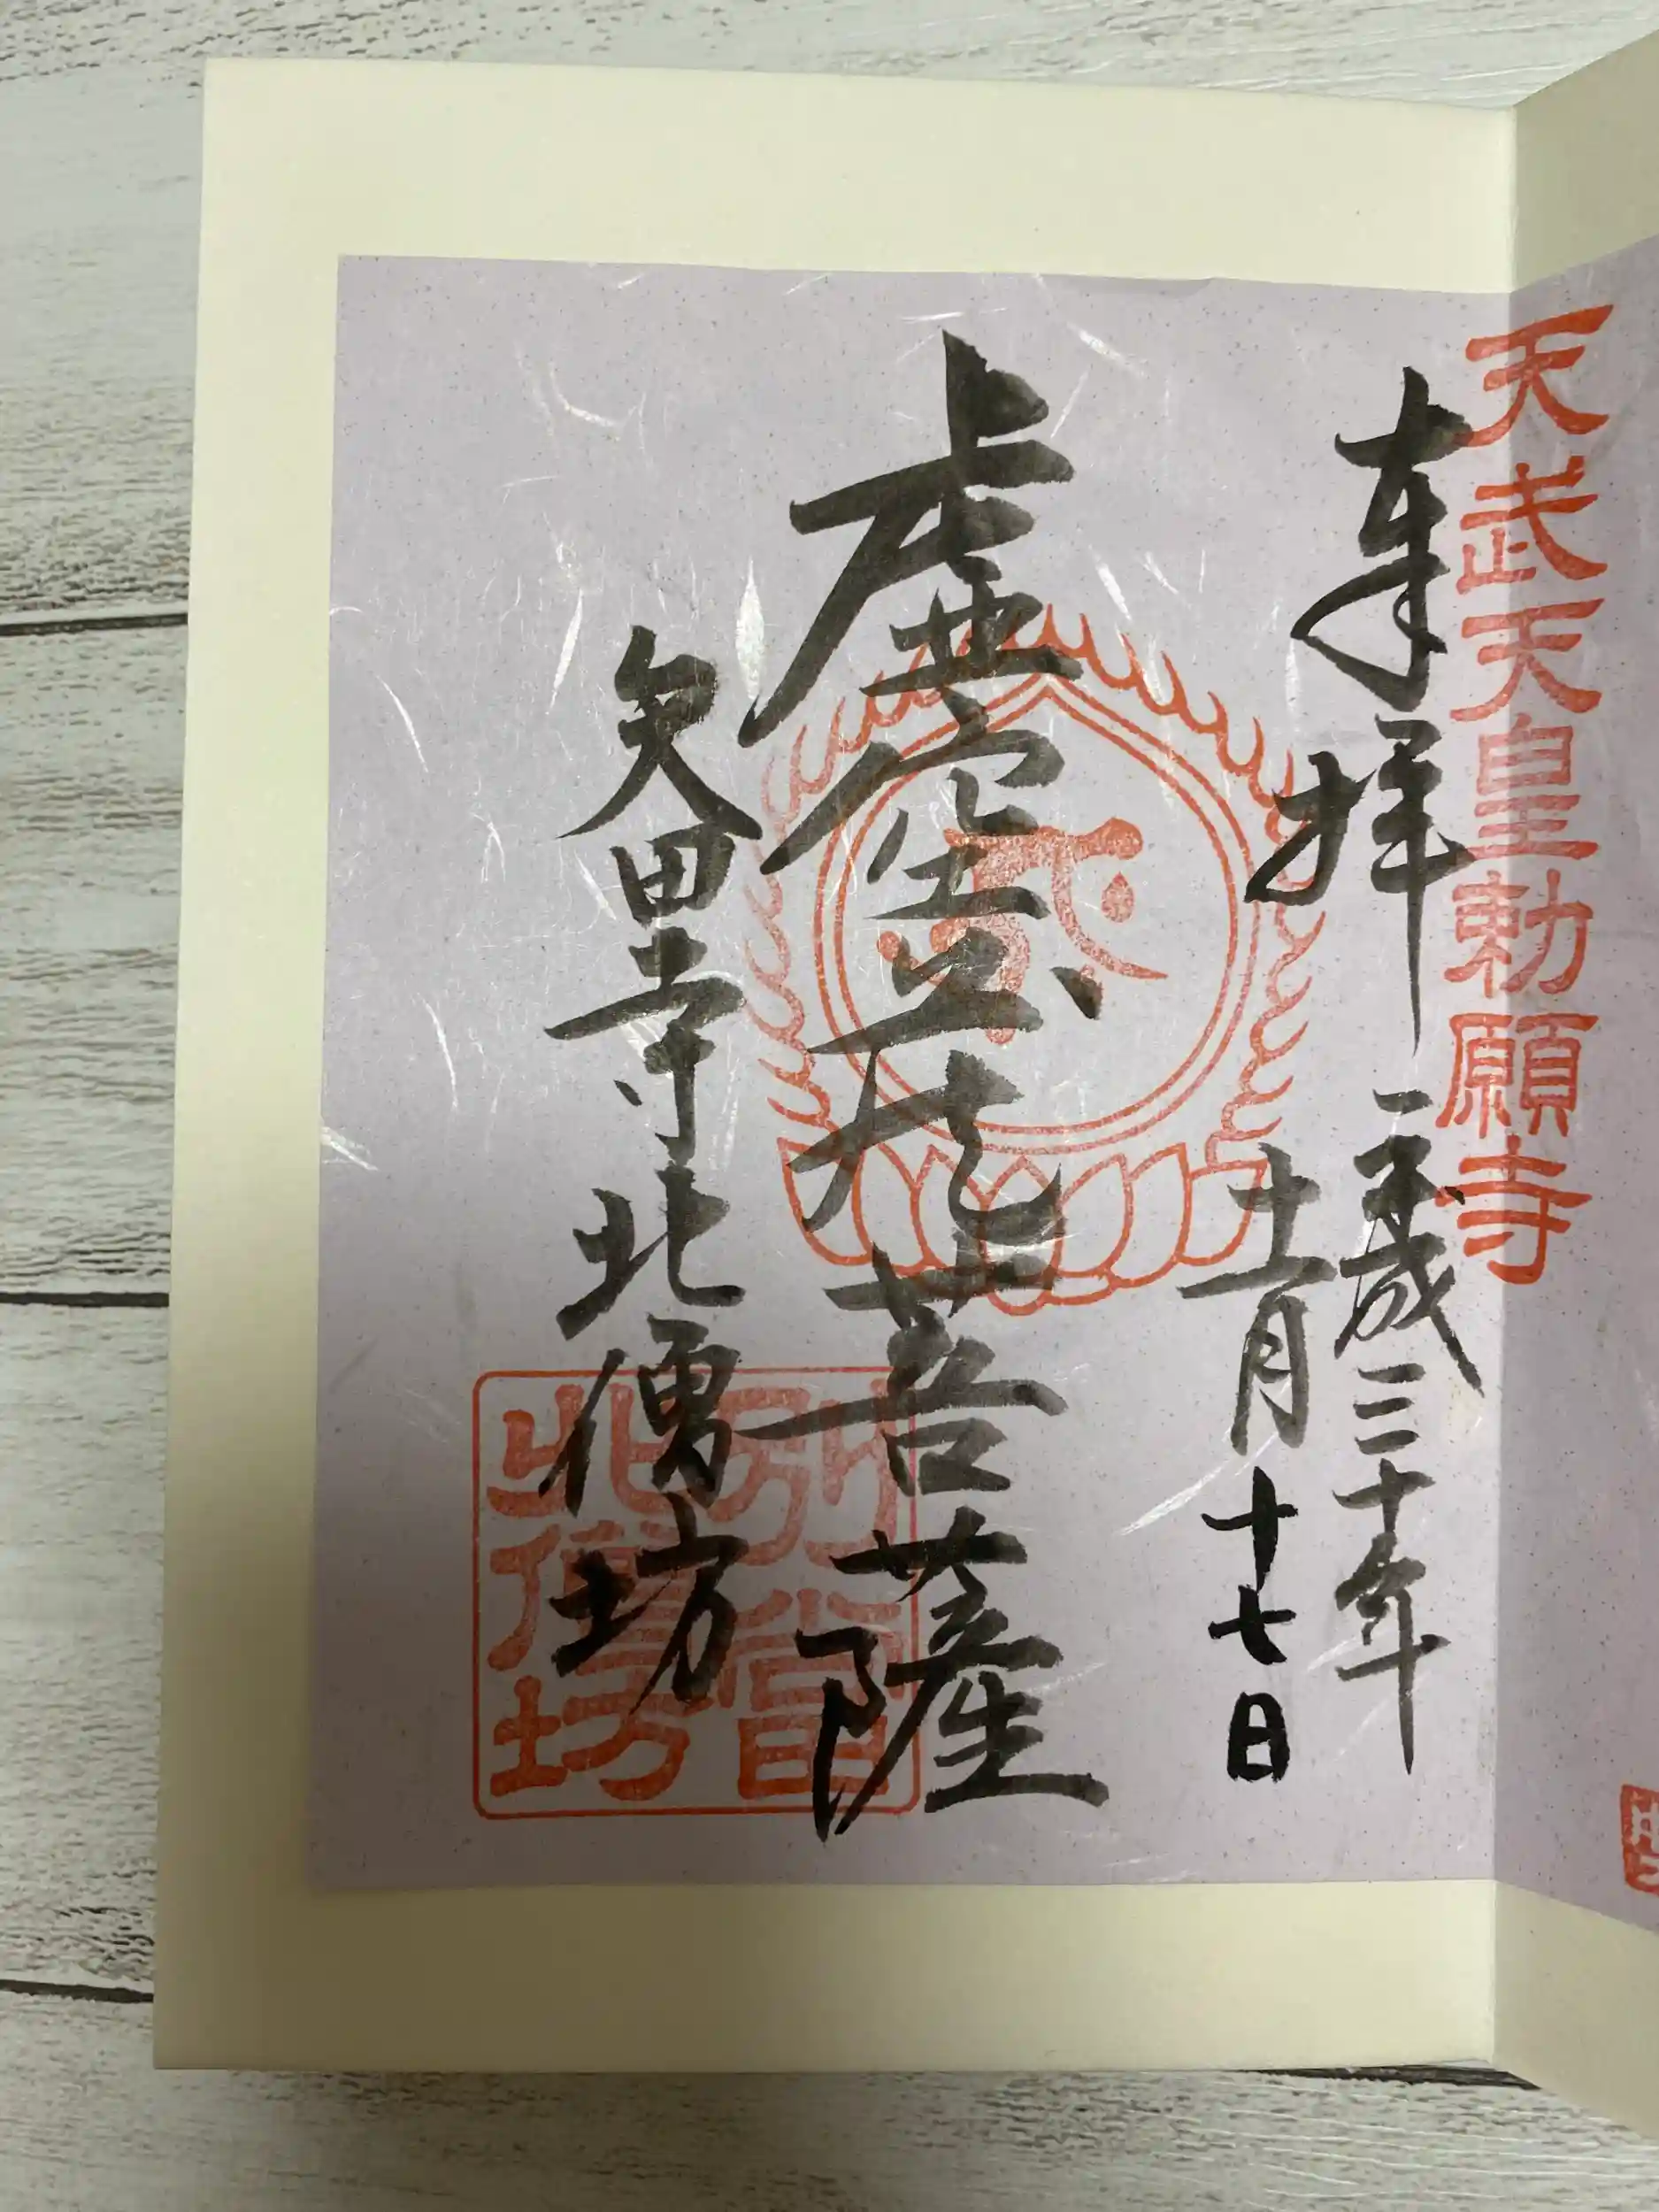 天武天皇勅願寺
奉拝 平成三十年
十一月十七日
虚空蔵菩薩
矢田寺北僧坊
別當
北僧坊